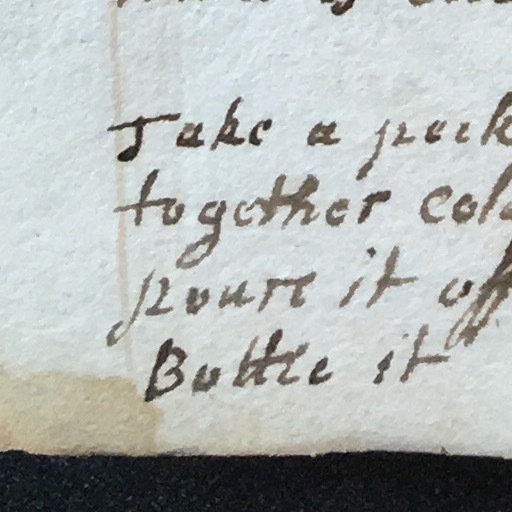 Take a peck
together Col
poure it off
Bottle it